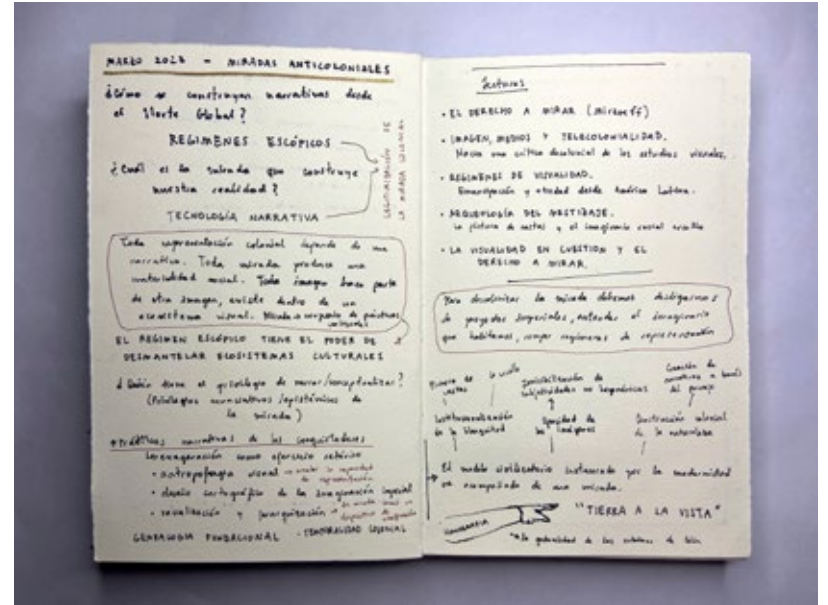 MARZO 2023 - MIRADAS ANTICOLONIALES
¿Cómo se construyen narrativas desde
el Norte Global?
REGIMENES ESCÓPICOS
LEGITIMIZACIÓN DE
LA MIRADA COLONIAL
¿Cuál es la mirada que construye
nuestra realidad?
TECNOLOGÍA NARRATIVA
Toda representación colonial depende de una
narrativa. Toda mirada produce una
materialidad social. Toda imagen hace parte
de otra imagen, existe dentro de un
ecosistema visual. Mirada = conjunto de prácticas
EL REGIMEN ESCÓPICO TIENE EL PODER DE
DESMANTELAR ECOSISTEMAS CULTURALES
¿Quién tiene el privilegio de narrar/conceptualizar?
(Privilegios enunciativos/epistémicos de
la mirada)
Prácticas narrativas de los conquistadores
La exageración como ejercicio retórico
• antropofagia visual → anular la capacidad
de representación
• diseño cartográfico de la imaginación imperial
• racialización y jerarquización
GENEALOGIA FUNDACIONAL - TEMPORALIDAD COLONIAL
Lecturas
• EL DERECHO A MIRAR (Mirzoeff)
• IMAGEN, MEDIOS Y TELECOLONIALIDAD.
Hacia una crítica decolonial de los estudios visuales.
• REGIMENES DE VISUALIDAD.
Emancipación y otredad desde América Latina.
• ARQUEOLOGÍA DEL MESTIZAJE.
La pintura de castas y el imaginario racial criollo
• LA VISUALIDAD EN CUESTIÓN Y EL
DERECHO A MIRAR.
Para decolonizar la mirada debemos desligarnos
de proyectos imperiales, entender el imaginario
que habitamos, romper regímenes de representación
Pintura de
castas
Invisibilización de
subjetividades no hegemónicas
Creación de
narrativas a través
del paisaje
Institucionalización
de la blanquitud
Opacidad de
las imágenes
Construcción colonial
de la naturaleza
→ El modelo civilizatorio instaurado por la modernidad
va acompañado de una mirada.
"TIERRA A LA VISTA"